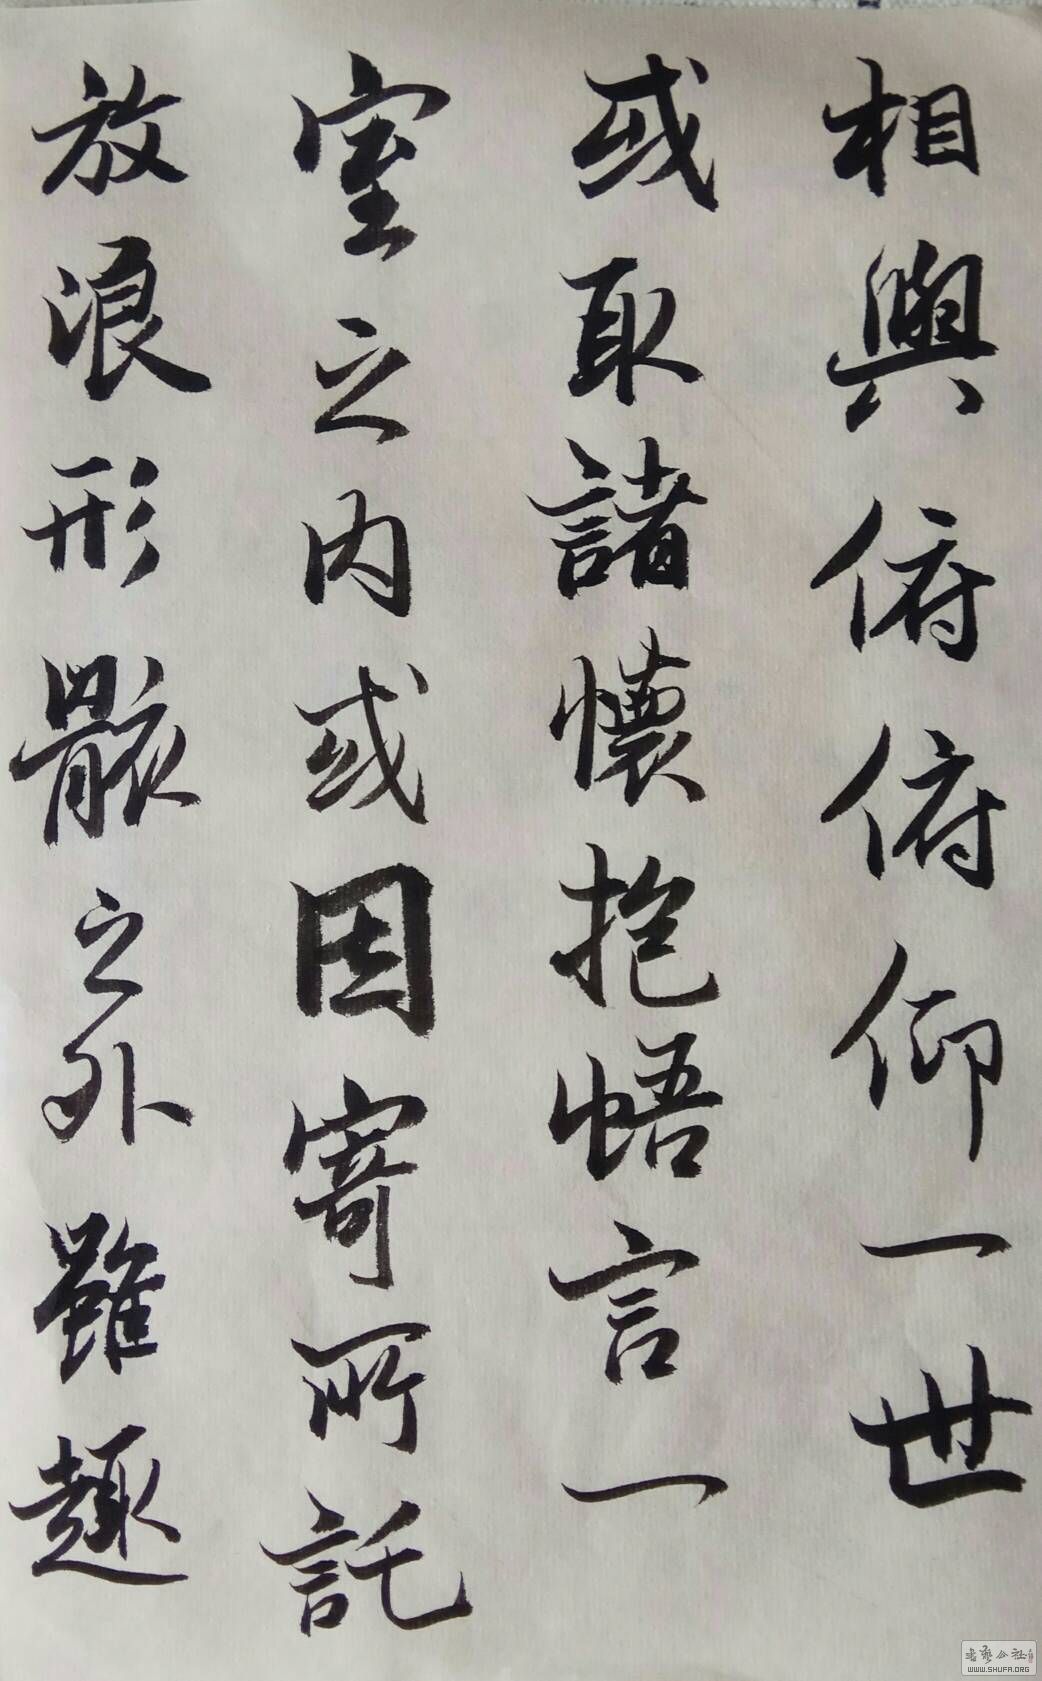 相與俯俯仰一世
或取諸懷抱悟言一
室之内或因寄所託
放浪形骸之外雖趣
書藝公社
WWW.SHUFA.ORG